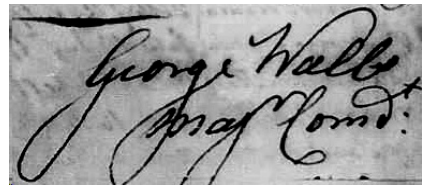 George Walls
Majr Comdt: